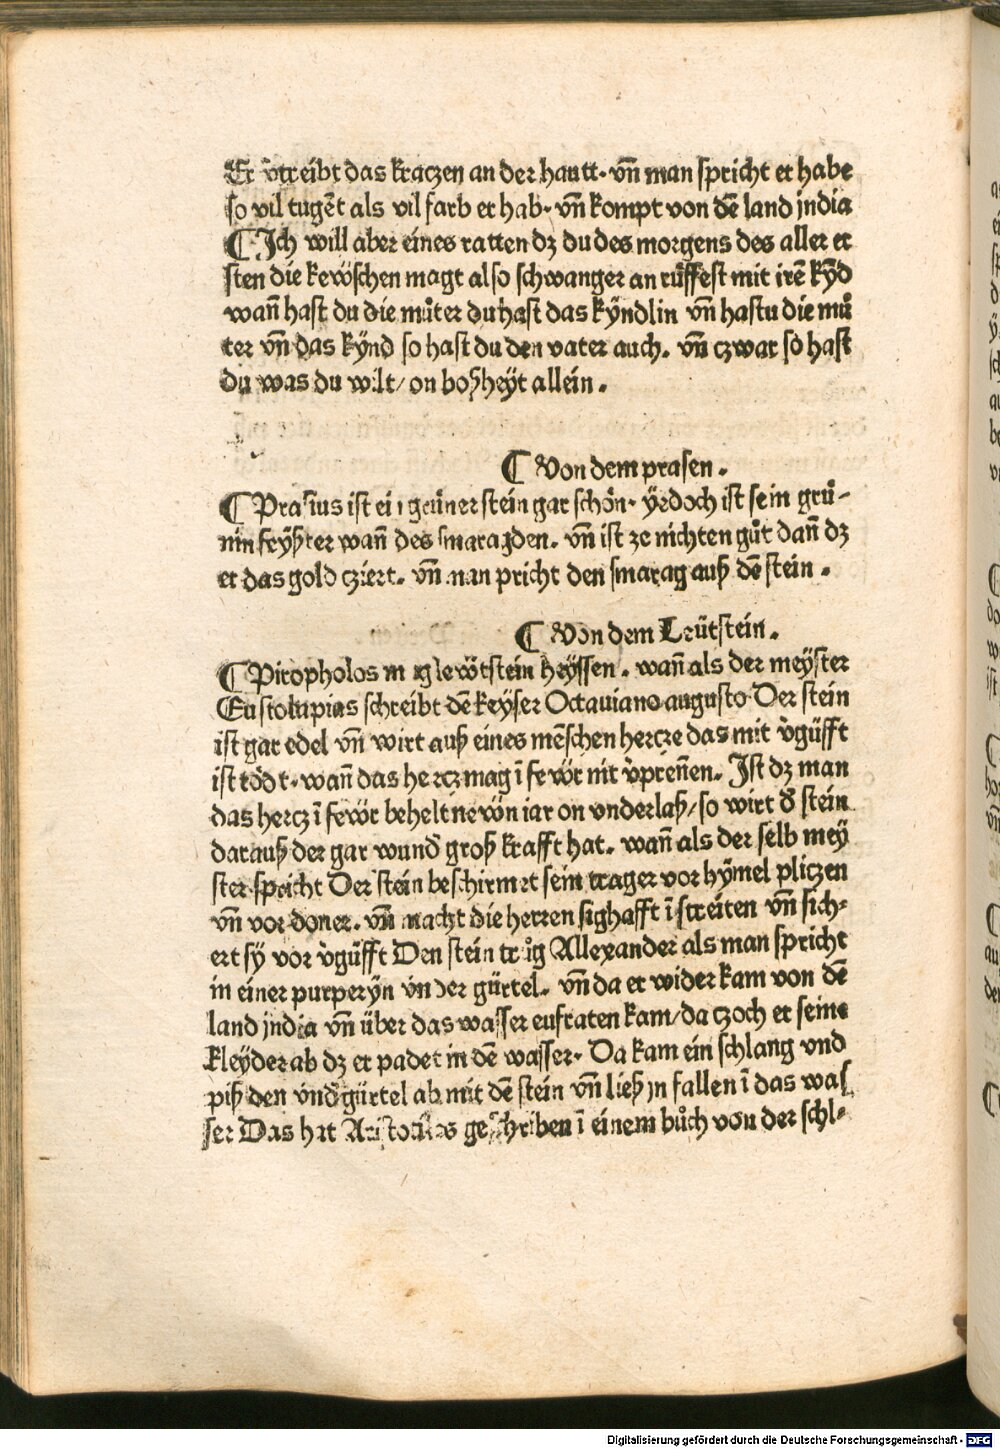 Er v̉treibt das kraczen an der hautt· vn̄ man spricht er habe
so vil tugēt als vil farb er hab· vn̄ kompt von dē land jndia
¶ Jch will aber eines ratten dz du des morgens des aller er
sten die kewschen magt also schwanger an růffest mit irē kÿd
wan̄ hast du die můter du hast das kÿndlin vn̄ hastu die mů
ter vn̄ das kÿnd so hast du den vater auch. vn̄ czwar so hast
du was du wilt/ on boßheÿt allein.
¶ Von dem prasen.
¶ Prasius ist ein grüner stein gar schön· ÿedoch ist sein grü-
nin feyßter wan̄ des smaragden. vn̄ ist ze nichten gůt dan̄ dz
er das gold cziert. vn̄ man spricht den smarag auß dē stein.
¶ Von dem Leütstein.
¶ Piropholos mag lewtstein heÿssen. wan̄ als der meÿster
Eustolupias schreibt dē keyser Octauiano augusto· Der stein
ist gar edel vn̄ wirt auß eines mēschen hercze das mit v̉güfft
ist tödt· wan̄ das hercz mag ī fewr nit v̉pren̄en. Ist dz man
das hercz ī fewr behelt newn iar on vnderlaß/ so wirt d̉ stein
darauß der gar wund̉ groß krafft hat. wan̄ als der selb mey
ster spricht Der stein beschirmet sein trager vor hÿmel pliczen
vn̄ vor doner. vn̄ macht die herren sighafft ī streiten vn̄ sich-
ert sÿ vor v̉güfft Den stein trůg Allexander als man spricht
in einer purperÿn vnder gürtel. vn̄ da er wider kam von dē
land jndia vn̄ über das wasser eufraten kam/ da czoch er seine
kleÿder ab dz er padet in dē wasser· Da kam ein schlang vnd
piß den vnd̉gürtel ab mit dē stein vn̄ ließ jn fallen ī das was
ser Das hat Aristotiles geschriben ī einem bůch von der schl-
Digitalisierung gefördert durch die Deutsche Forschungsgemeinschaft - DFG